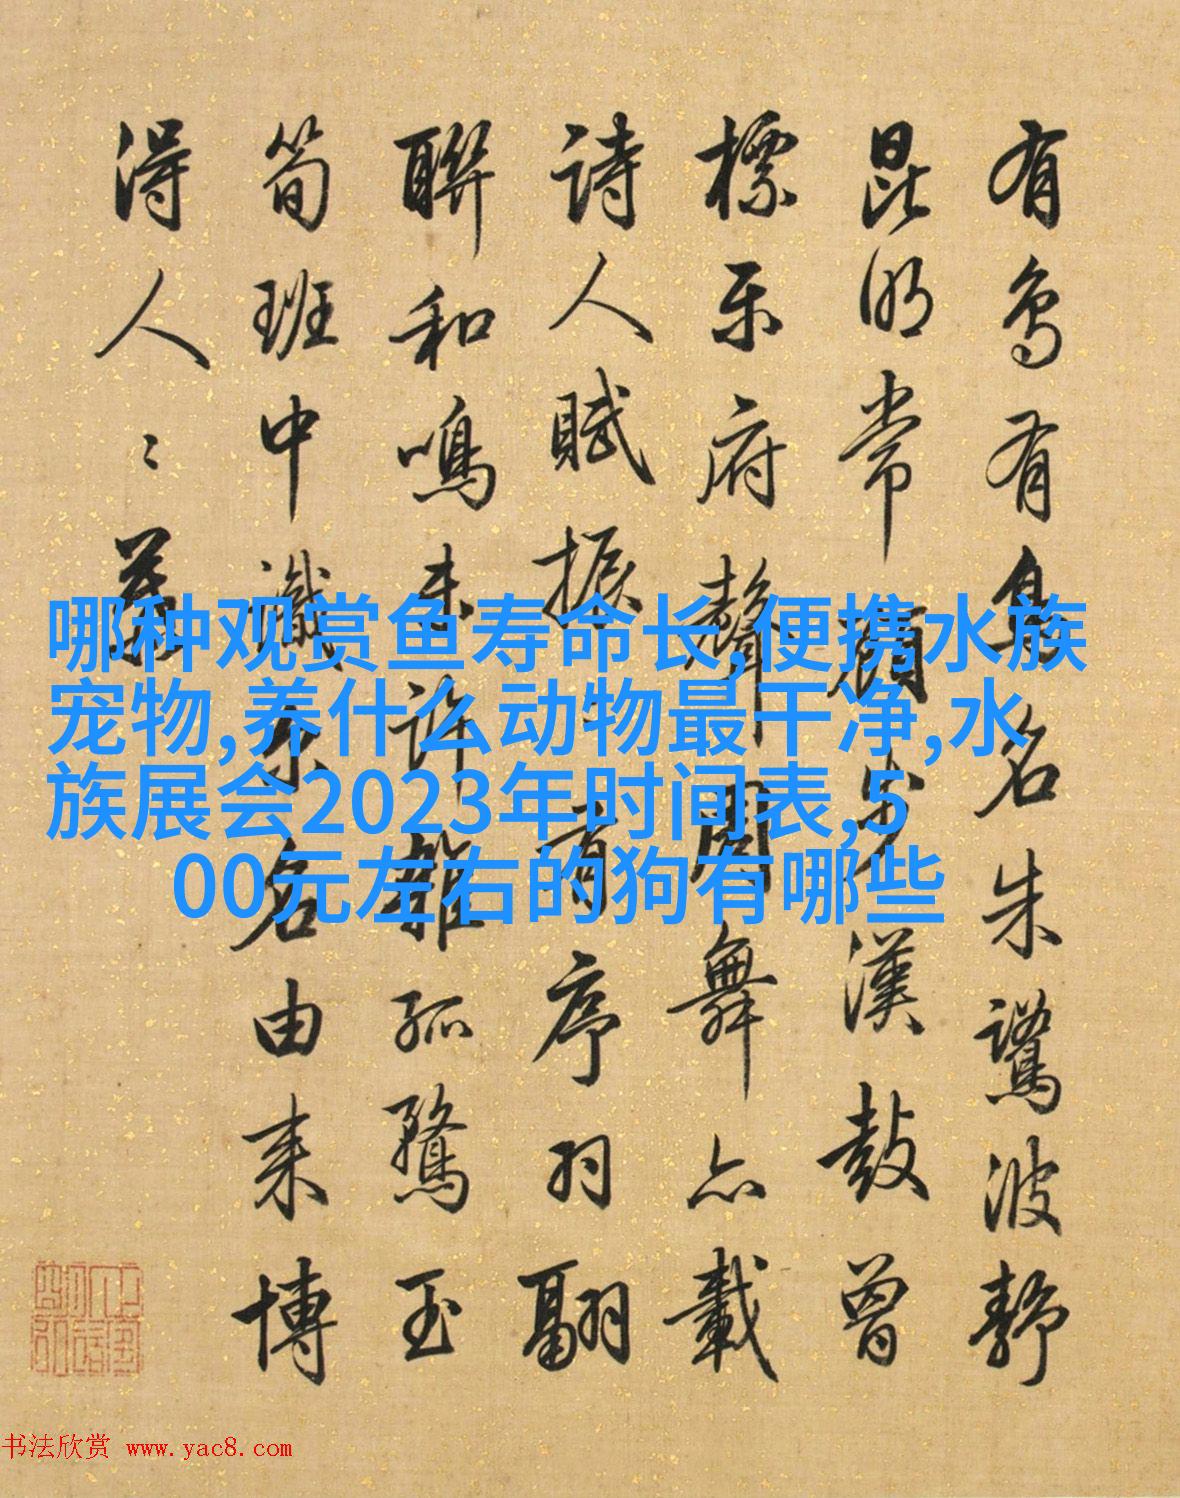 有鳥有鳥名朱鷺波靜
昆明常顧步漢鼓曾
標乐府聲聞舞亦載
詩人賦振〻有序羽翩
聯和鳴未許雜孤鶩玉
筍班中識名由来博
得人〻慕
哪种观赏鱼寿命长,便携水族
宠物,养什么动物最干净,水
族展会2023年时间表,5
00元左右的狗有哪些
书法欣赏 www.yac8.com